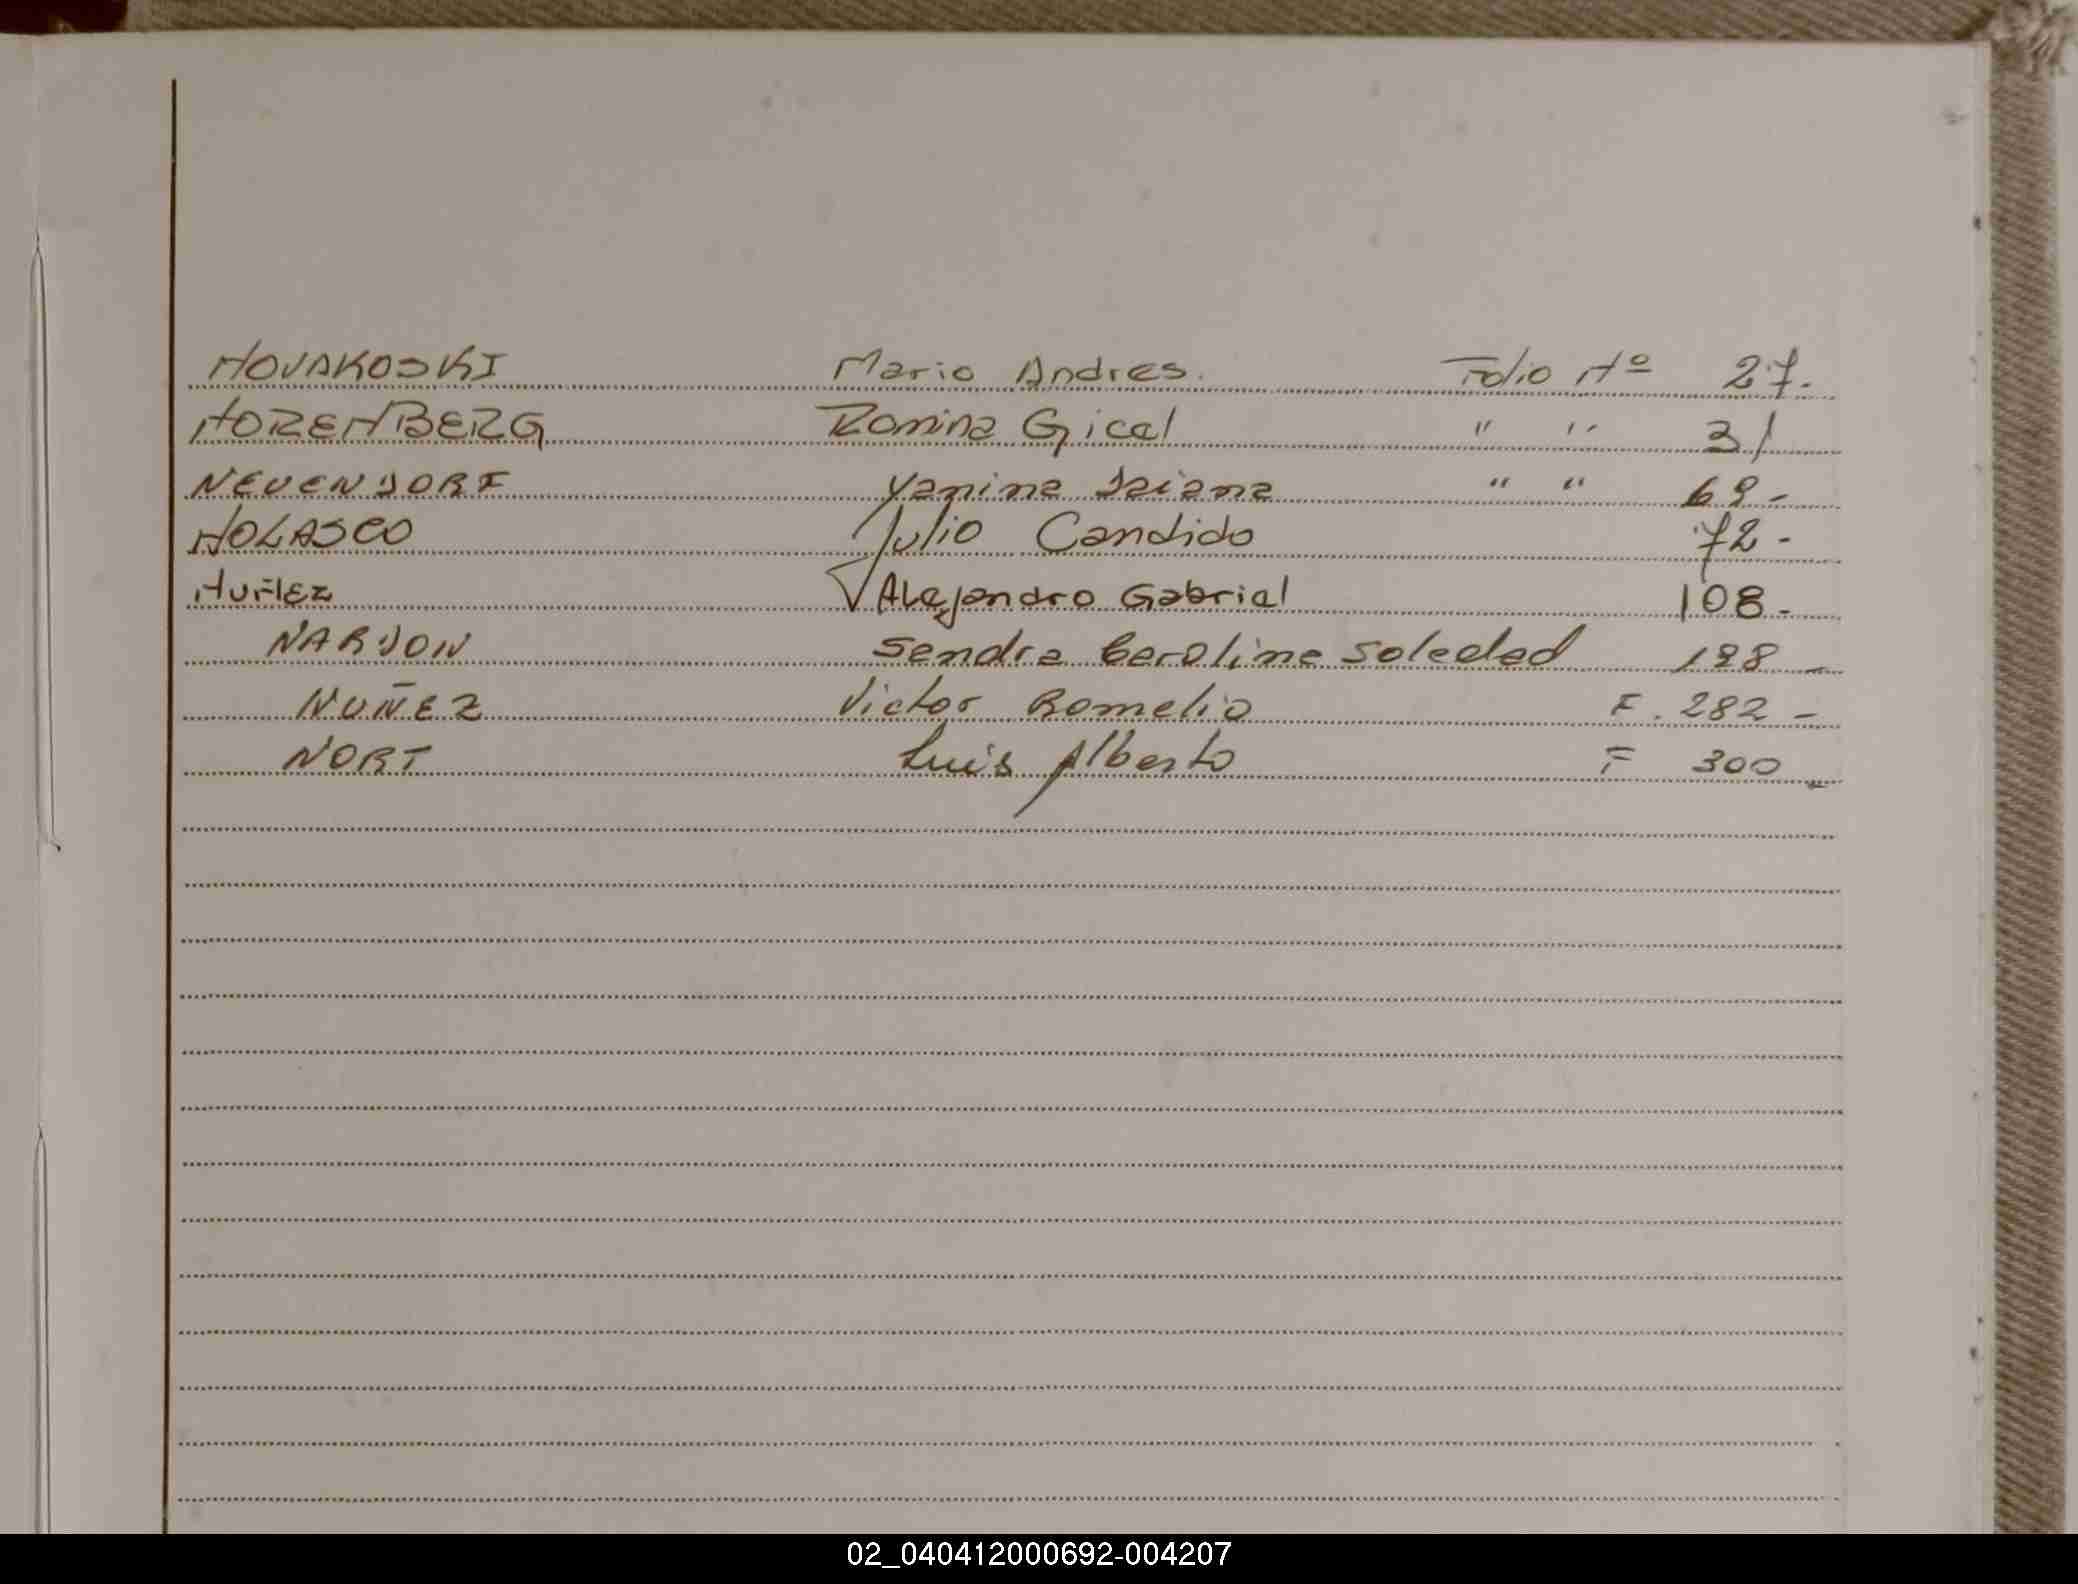 NOVAKOSKI Mario Andres. Folio Nº 27.
NORENBERG Romina Gicel " " 31
NEUENDORF Yanina Daiana " " 69-
NOLASCO Julio Candido 72-
NuÑEz Alejandro Gabriel 108-
NARDON Sandra Carolina Soledad 198-
NUÑEZ Victor Romelio F. 282-
NORT Luis Alberto F 300-
02_040412000692-004207